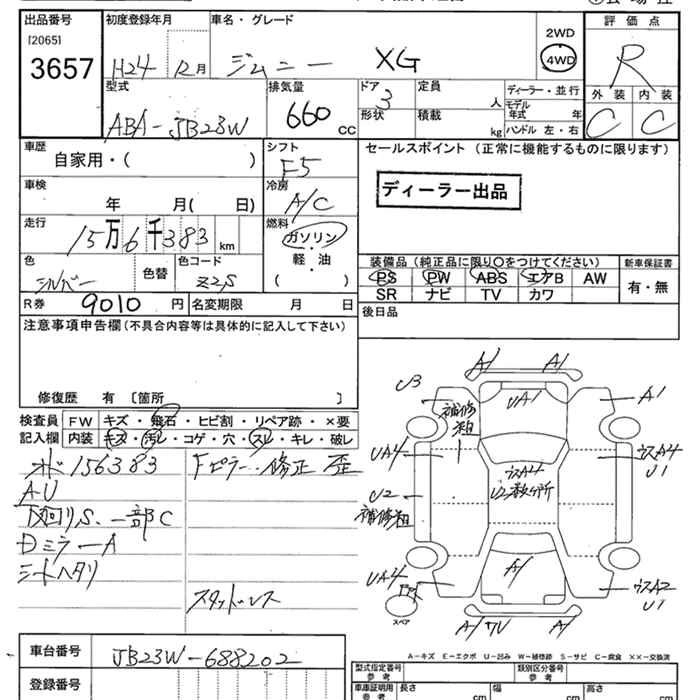 出品番号
[2065]
3657
初度登録年月
H24 12月
車名・グレード
ジムニー XG
2WD
4WD
評価点
R
外装 内装
C C
型式
ABA-JB23W
排気量
660 CC
ドア
3
形状
定員
人
積載
kg
ディーラー・並行
モデル
年式 年
ハンドル 左・右
車歴
自家用・( )
シフト
F5
セールスポイント (正常に機能するものに限ります)
ディーラー出品
車検
年 月( 日)
冷房
A/C
走行
15万6千383 km
燃料
ガソリン
軽・油
( )
色
シルバー
色替
色コード
Z2S
装備品 (純正品に限り○をつけてください)
PS PW ABS エアB AW
SR ナビ TV カワ
新車保証書
有・無
R券 9010 円
名変期限 月 日
後日品
注意事項申告欄 (不具合内容等は具体的に記入して下さい)
修復歴 有 〔箇所 〕
検査員
記入欄
FW キズ・飛石・ヒビ割・リペア跡・×要
内装 キズ・汚レ・コゲ・穴・スレ・キレ・破レ
オド156383
AU
下回りS、一部C
DミラーA
シートヘタリ
Fピラー修正 歪
スタッドレス
A/ A/
U3
UA1
A1
補修粗
UA4
ウスA4
U1
ウスA4
U2
補修粗
A/
UA4
ウスA2
U1
スペア
A/
A/
A-キズ E-エクボ U-凹み W-補修跡 S-サビ C-腐食 ××-交換済
車台番号
JB23W-688202
登録番号
型式指定番号
参考
類別区分番号
参考
車庫証明用
参考
長さ cm
幅 cm
高さ cm